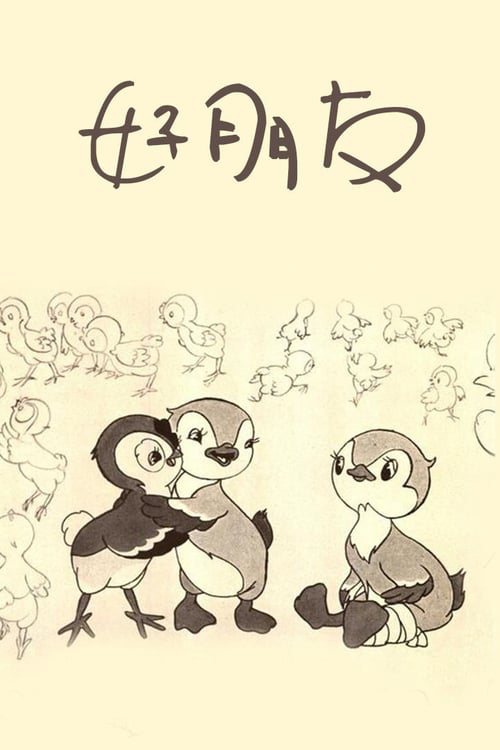 好朋友